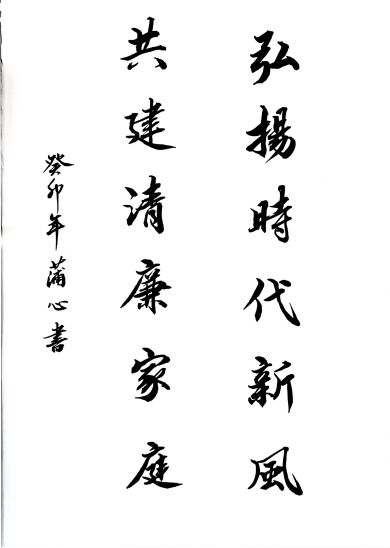 弘揚時代新風
共建清廉家庭
癸卯年蒲心書